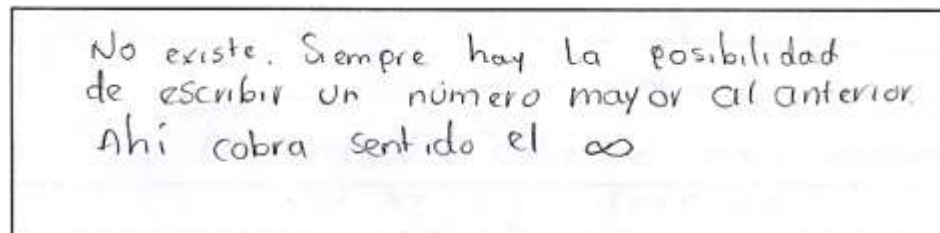 No existe. Siempre hay la posibilidad
de escribir un número mayor al anterior.
Ahí cobra sentido el ∞